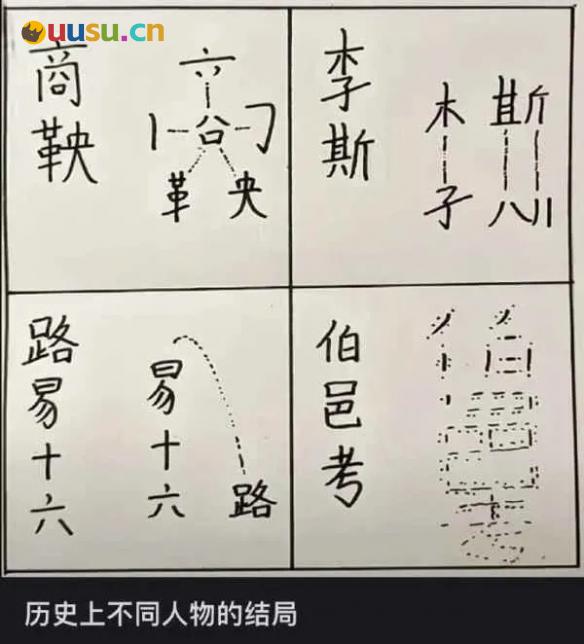 uusu.cn
商鞅
亠丷
丨 㕣 𠃌
革 央
李斯
木 斯
子 八 川
路易十六
易十六
路
伯邑考
历史上不同人物的结局